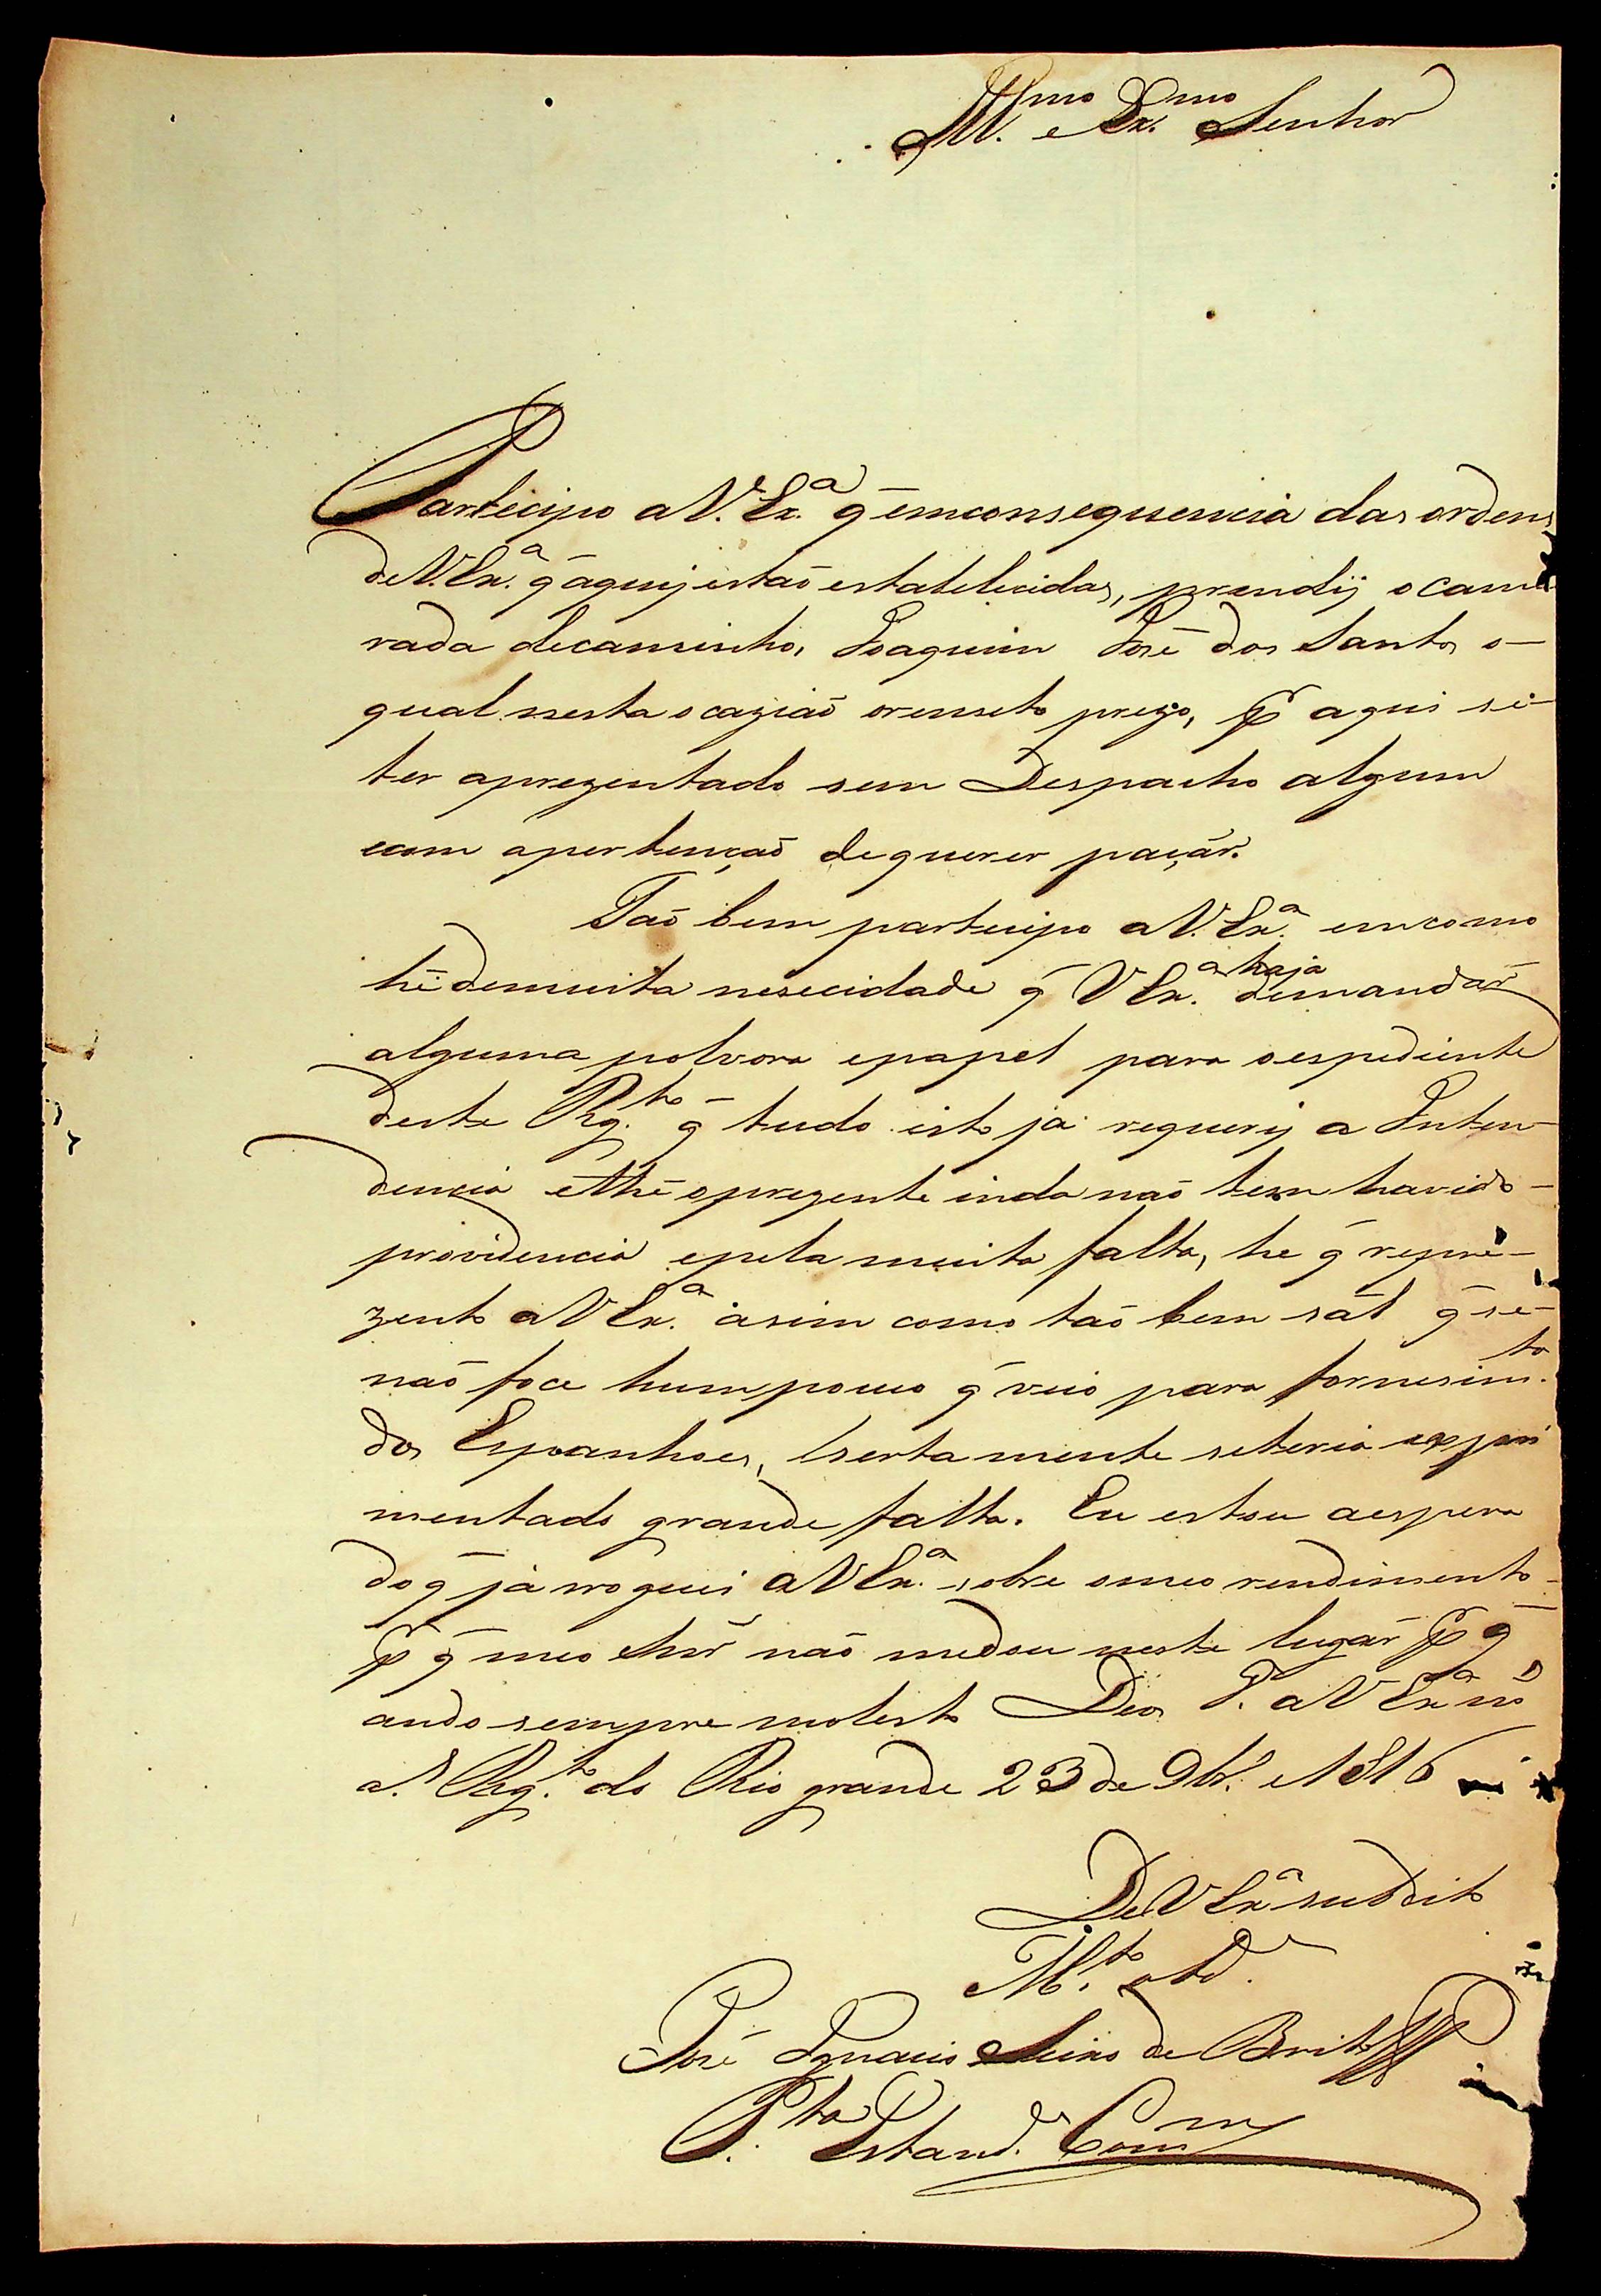 Ill.mo e Ex.mo Senhor
Partecipo a V. Ex.a q̃ emconsequencia das ordens
de V. Ex.a q̃ aquij estaõ estabelecidas, prendij o cama
rada decaminho, Joaquim José dos Santos o-
qual nesta ocaziaõ oremeto prezo, p.r aqui se-
ter aprezentado sem Despacho algum
com apertençaõ dequerer paçár.
Taõ bem partecipo a V. Ex.a emcomo
hé demuita nesecidade q̃ V Ex.a haja demandár
alguma polvora epapel para oespediente
deste Rg.to q̃ tudo isto já requerij a Inten-
dencia ethé oprezente inda naõ tem havido-
providencia epela muita falta, he q̃ repre-
zento a V Ex.a asim como taõ bem sál q̃ se-
naõ foce humpouco q̃ veio para fornesim.to
dos Espanhoes, sertamente seteria
mentado grande falta. Eu estou aespera
doq̃ já roguei a V Ex.a sobre omeo rendimento-
p.r q̃ meo naõ medou neste lugár p.r q̃
ando sempre molesto Deos G. a V Ex.a m.s
a.s Rg.to do Rio grande 23 de 9br.o e 1816
De V Ex.a suddito
M.to
José Ignacio de Brito
P.ta Estand.e Com.e